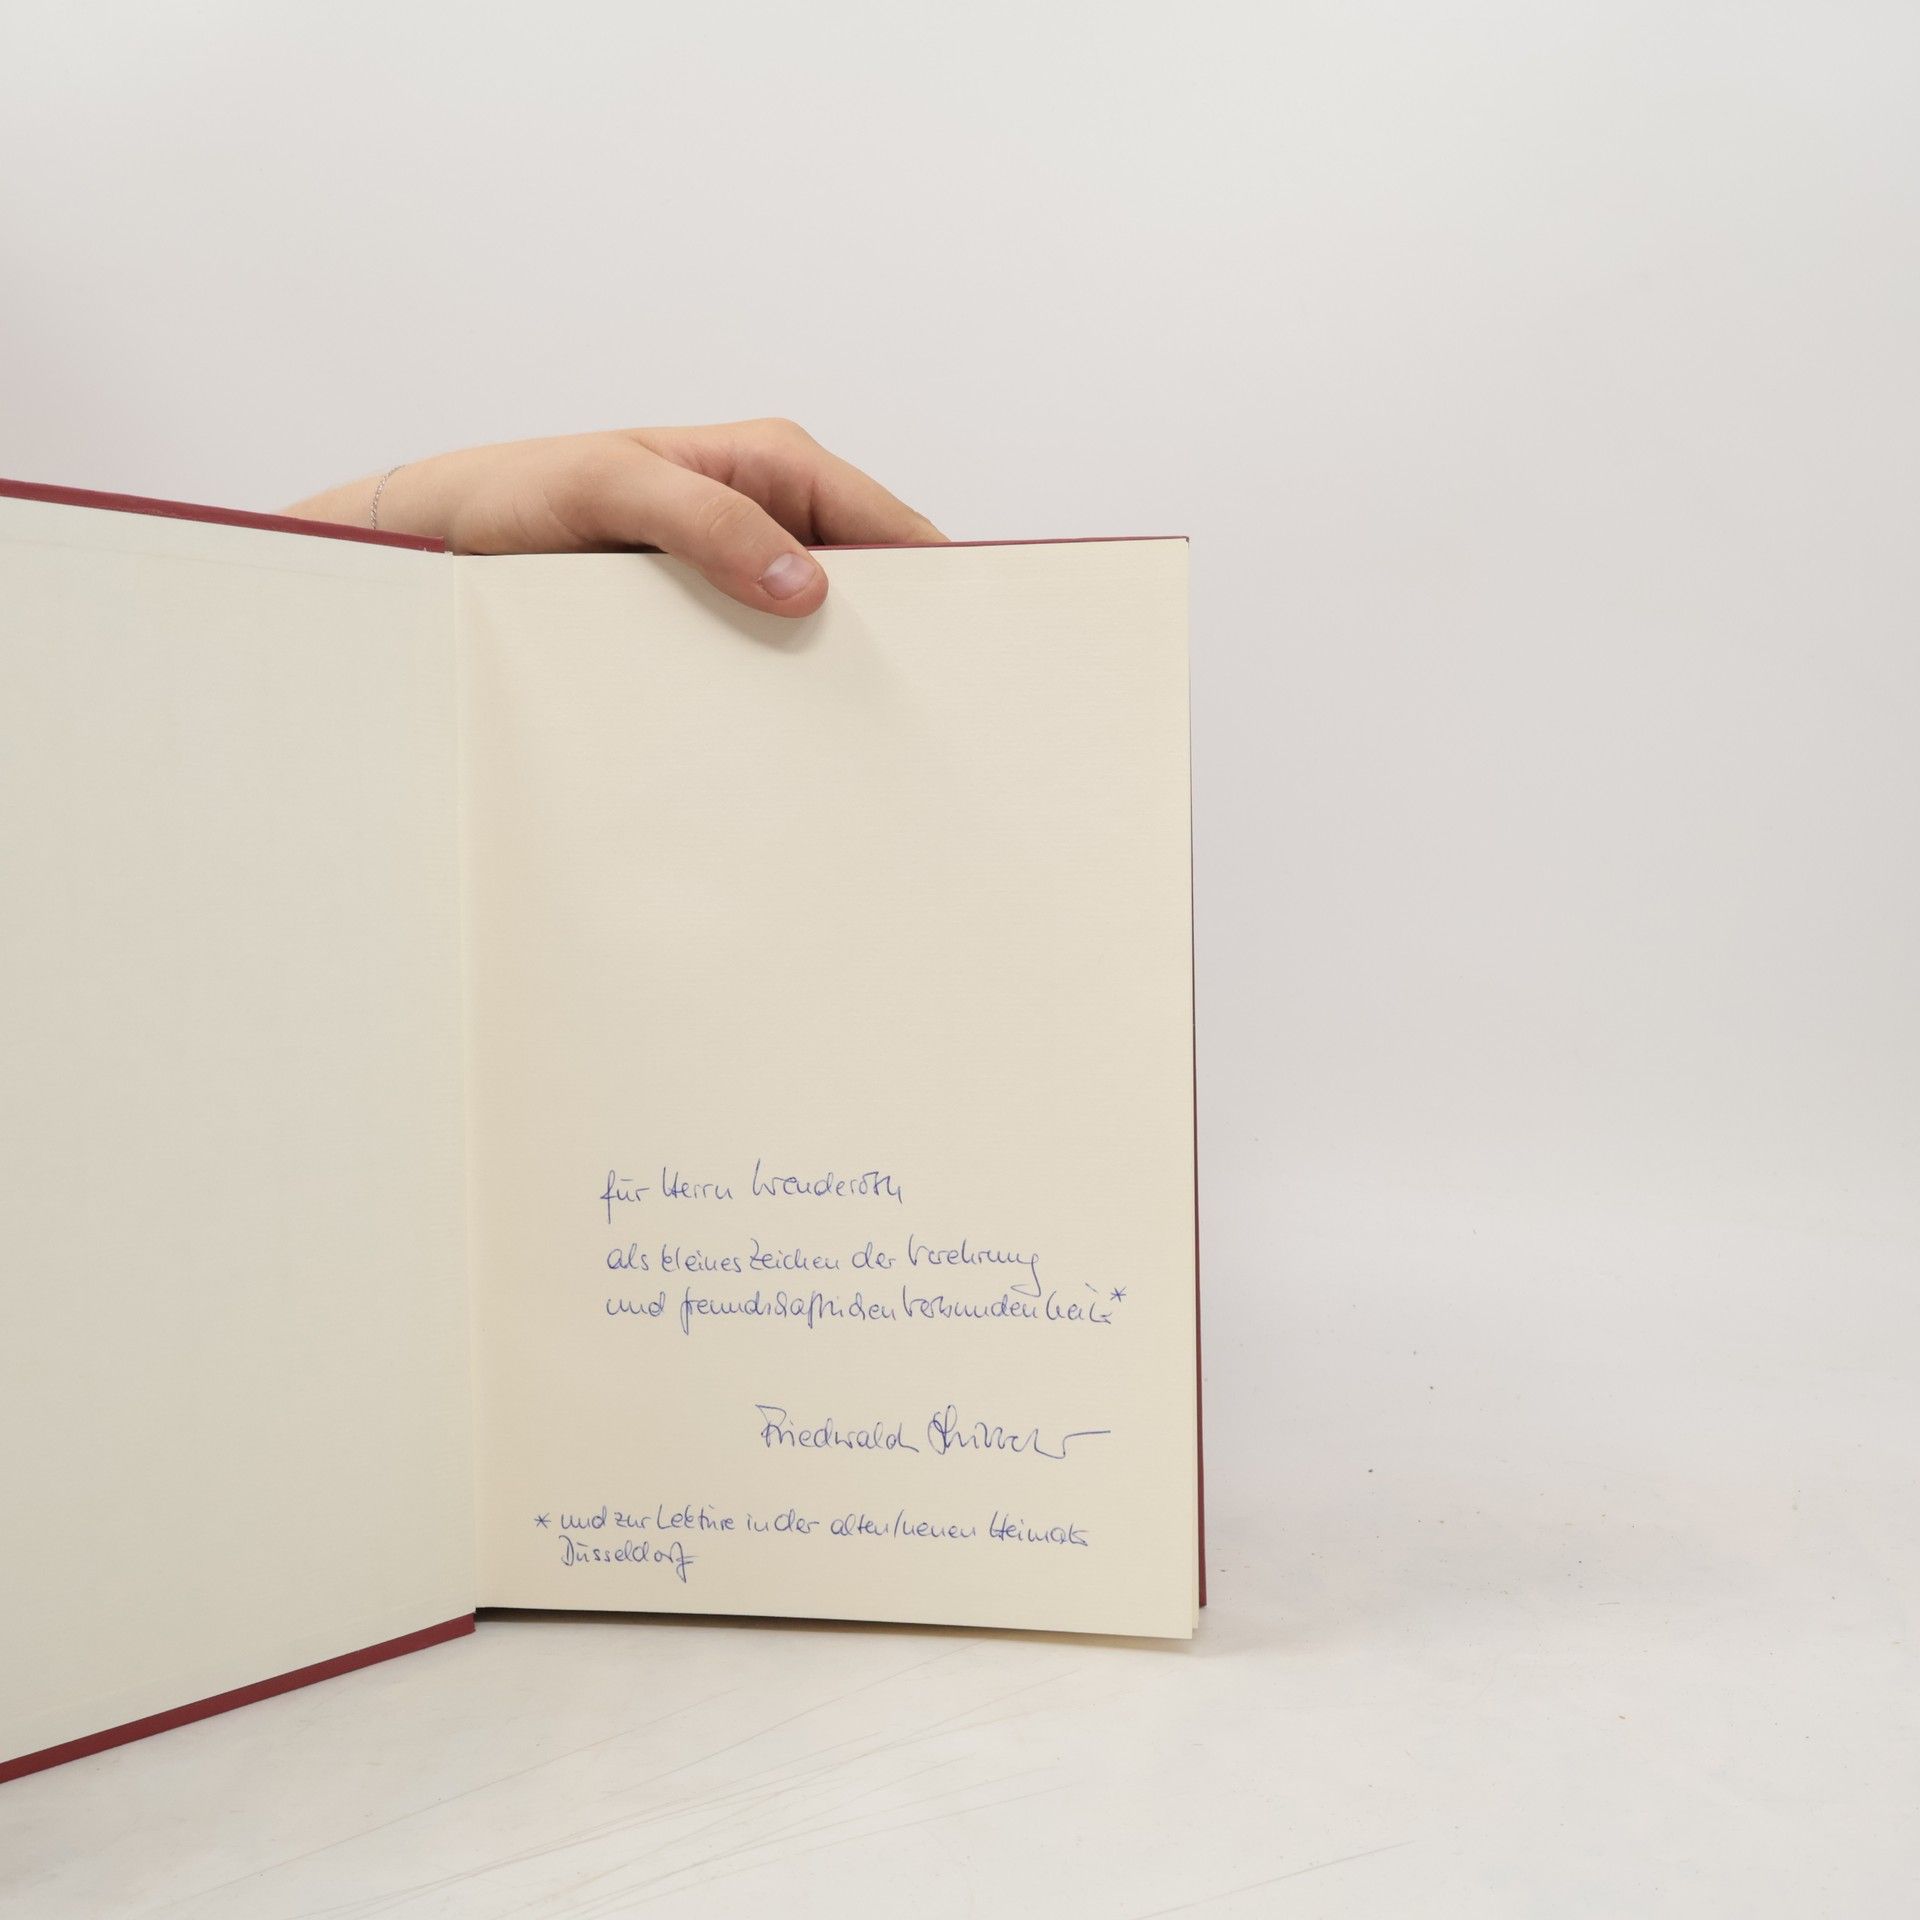 für Herrn Wenderoth
als kleines Zeichen der Verehrung
und freundschaftlichen Verbundenheit*
Friedwald
* und zur Lektüre in der alten/neuen Heimat
Düsseldorf